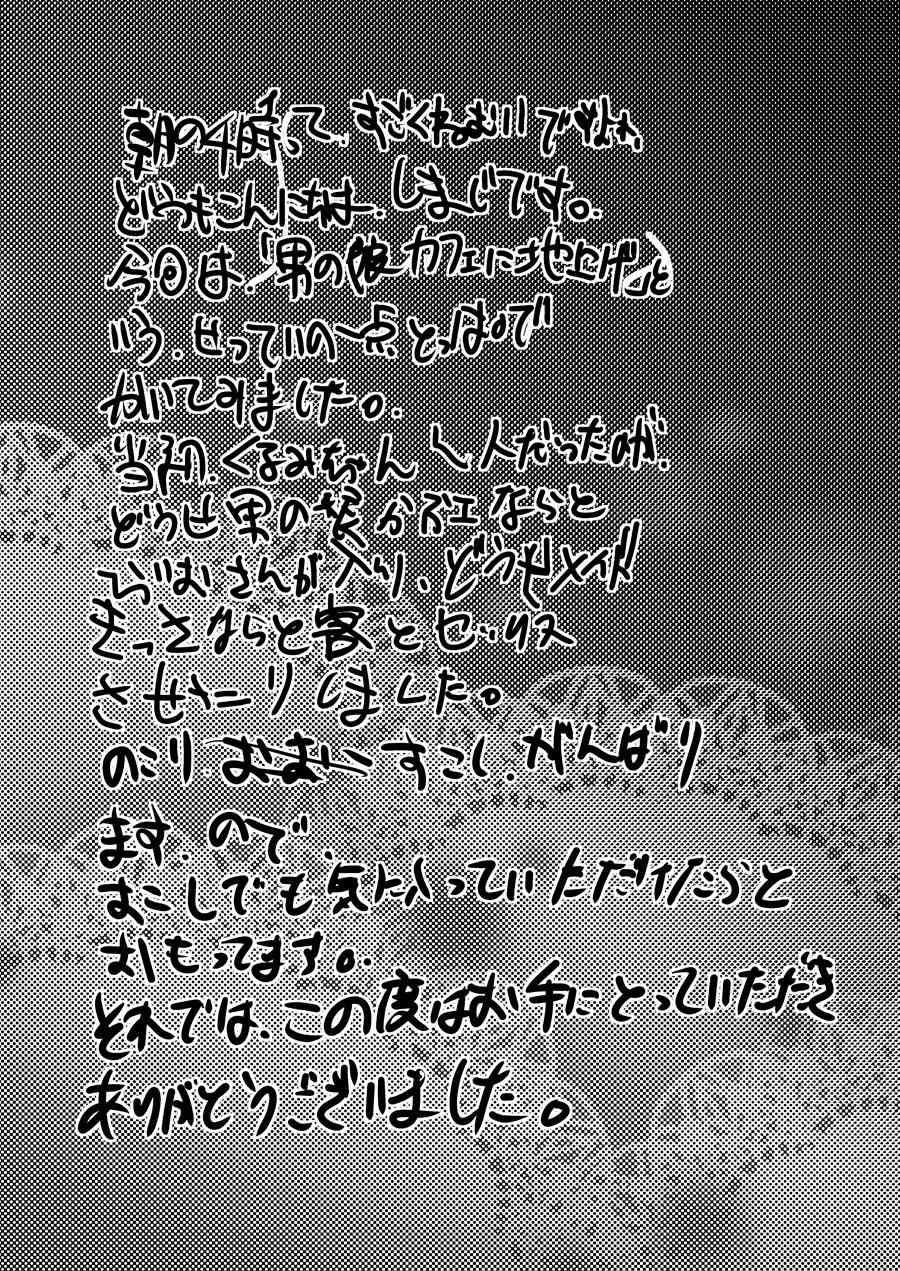 朝の4時って、すごくねむいですよね、
どうもこんにちは、しまじです。
今回は「男の娘カフェに地上げ」と
いう、せっていの一点とっぱで
かいてみました。
当初、くるみちゃん1人だったのが、
どうせ男の娘かふェならと
らいむさんが入り、どうせメイド
きっさならと客とセックス
させたりしました。
のこり、すこし、がんばり
ます、ので、
すこしでも気に入っていただけたらと
おもってます。
それでは、この度はお手にとっていただき
ありがとうございました。